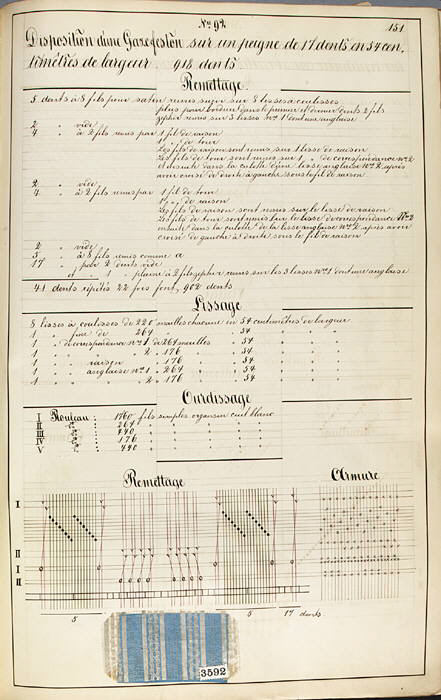 N.º 92.
151
Disposition d'une Gaze feston sur un peigne de 17 dents en 54 cen.
timètres de largeur 918 dents
Remettage.
5 dents à 8 fils pour satin remis suivi sur 8 lisses à coulisses
plus pour cordon dans la première et dernière dents 2 fils
zephir remis sur 3 lisses N.º 1 dont une anglaise
2 " vide
4 " à 2 fils remis par 1 fil de raison
1 " de tour
Les fils de raison sont remis sur 1 lisse de raison
Les fils de tour sont remis sur 1 " de correspondance N.º 2
et ensuite dans la culotte d'une lisse anglaise N.º 2 après
avoir croisé de droite à gauche sous le fil de raison
2 " vide
4 " à 2 fils remis par 1 fil de tour
1 " de raison
Les fils de raison sont remis sur la lisse de raison
Les fils de tour sont remis sur la lisse de correspondance N.º 2
ensuite dans la culotte de la lisse anglaise N.º 2 après avoir
croisé de gauche à droite sous le fil de raison
2 " vide
5 " à 8 fils remis comme a
17 " pour 2 dents vide
et 1 " pleine à 2 fils zephir remis sur les 3 lisses N.º 1 dont une anglaise
41 dents répétés 22 fois font, 902 dents
Lissage
8 lisses à coulisses de 220 mailles chacune en 54 centimètres de largeur
1 " fixe de 264 " " 54 " " "
1 " de correspondance N.º 1 de 264 mailles " 54 " " "
1 " " " 2 " 176 " " 54 " " "
1 " raison " 176 " " 54 " " "
1 " anglaise N.º 1 " 264 " " 54 " " "
1 " " " 2 " 176 " " 54 " " "
Ourdissage
I Rouleau : 1760 fils simples organsin cuit blanc
II " : 264 " " " " "
III " : 440 " " " " "
IV " : 176 " " " " "
V " : 440 " " " " "
Remettage
Armure
I
II
I
II
5
5
17 dents
3592